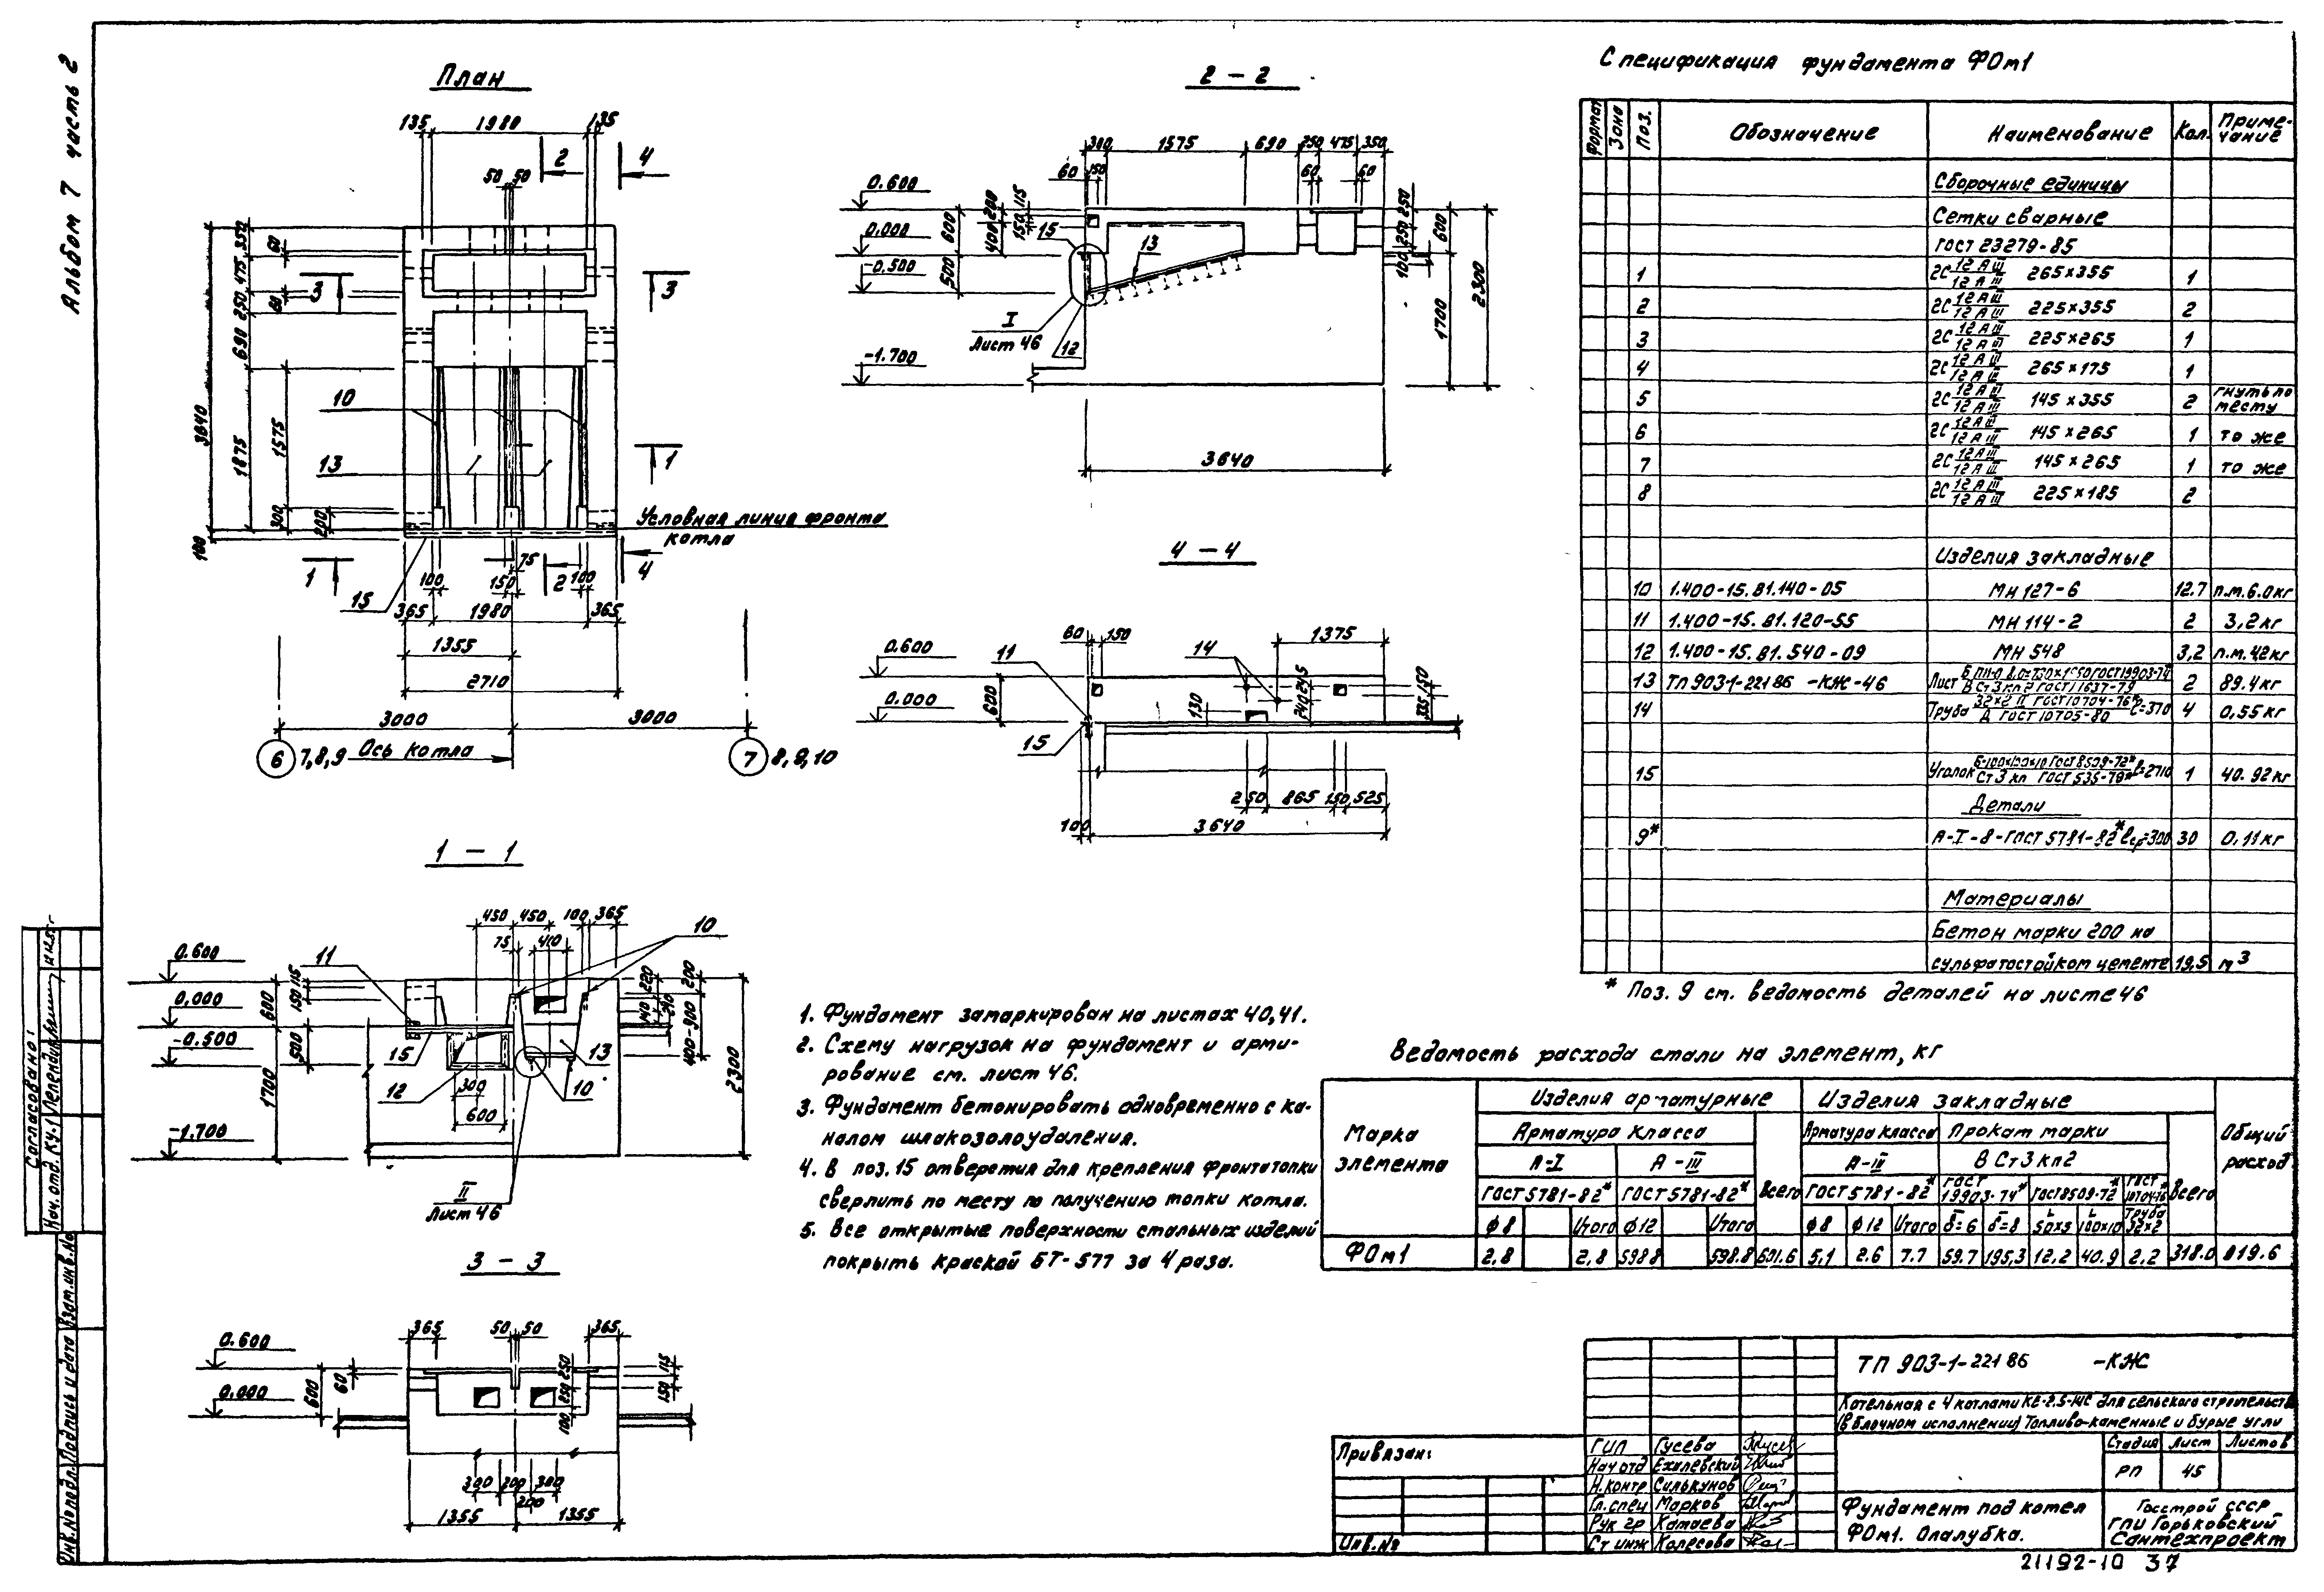 Альбом 7 часть 2
План
135 1980 135
50 50
2 4
3 3
60
350
475
60
250
690
3640
1875
1575
300
200
100
10
13
1
Условная линия фронта
котла
1 2 4
75
100 150 100
15
365 1980 365
1355
2710
3000 3000
6 7,8,9 Ось котла 7 8,9,10
2 – 2
300 1575 690 250 475 350
60 150 115 60 60
0.600
0.000
-0.500
-1.700
600 500
200 400 150
15 13
I
Лист 46
12
250 250 100
600 1700 2300
3640
4 – 4
60 150 1375
0.600
0.000
11 14
600
130
240 245
150 335
15
250 865 150 525
100 3640
1 – 1
450 450 100 365
75 410
10
11
0.600
0.000
-0.500
-1.700
600 1700
150 115
500
220 140
200
400-900
2300
15
12
300
600
13
10
II
Лист 46
3 – 3
365 50 50 365
0.600
0.000
600 60
250 250 100
115 150
300 200 300
200
1355 1355
1. Фундамент замаркирован на листах 40,41.
2. Схему нагрузок на фундамент и арми-
рование см. лист 46.
3. Фундамент бетонировать одновременно с ка-
налом шлакозолоудаления.
4. В поз. 15 отверстия для крепления фронта топки
сверлить по месту по получению топки котла.
5. Все открытые поверхности стальных изделий
покрыть краской БТ-577 за 4 раза.
Спецификация фундамента ФОм1
Формат Зона Поз. Обозначение Наименование Кол. Приме-
чание
Сборочные единицы
Сетки сварные
ГОСТ 23279-85
1 2С 12 А III / 12 А III 265×355 1
2 2С 12 А III / 12 А III 225×355 2
3 2С 12 А III / 12 А III 225×265 1
4 2С 12 А III / 12 А III 265×175 1
5 2С 12 А III / 12 А III 145×355 2 гнуть по месту
6 2С 12 А III / 12 А III 145×265 1 то же
7 2С 12 А III / 12 А III 145×265 1 то же
8 2С 12 А III / 12 А III 225×185 2
Изделия закладные
10 1.400-15.В1.140-05 МН 127-6 12.7 п.м. 6.0кг
11 1.400-15.В1.120-55 МН 114-2 2 3,2кг
12 1.400-15.В1.540-09 МН 548 3,2 п.м. 4.2кг
13 ТП 903-1-221 86 -КЖ-46 Лист ГОСТ 19903-74* / ВСт3кп2 ГОСТ 14637-79 2 89.4кг
14 Труба 32×2 ГОСТ 10704-76* / Д ГОСТ 10705-80 ℓ=370 4 0,55кг
15 Уголок Б-100×100×10 ГОСТ 8509-72* / Ст3кп ГОСТ 535-79* ℓ=2710 1 40.92кг
Детали
9* А-I-8-ГОСТ 5781-82* ℓср=300 30 0.11кг
Материалы
Бетон марки 200 на
сульфатостойком цементе 19,5 м3
* Поз. 9 см. ведомость деталей на листе 46
Ведомость расхода стали на элемент, кг
Марка элемента Изделия арматурные Изделия закладные Общий расход
Арматура класса Всего Арматура класса Прокат марки Всего
А-I А-III А-III ВСт3кп2
ГОСТ 5781-82* ГОСТ 5781-82* ГОСТ 5781-82* ГОСТ 19903-74* ГОСТ 8509-72* ГОСТ 10704-76*
Ф8 Итого Ф12 Итого Ф8 Ф12 Итого δ=6 δ=8 L 50×5 L 100×10 Труба 32×2
ФОм1 2,8 2,8 598.8 598.8 601.6 5,1 2.6 7.7 59.7 195,3 12,2 40.9 2,2 318.0 919.6
ТП 903-1-221 86 -КЖ
Котельная с 4 котлами КЕ-2.5-14С для сельского строительства
(в блочном исполнении) Топливо-каменные и бурые угли
Стадия Лист Листов
РП 45
Фундамент под котел
ФОм1. Опалубка.
Госстрой СССР
ГПИ Горьковский
Сантехпроект
ГИП Гусева
Нач отд Ехилевский
Н.контр Силькунов
Гл.спец Марков
Рук гр Катаева
Ст инж Колесова
Привязан:
Инв.№
21192-10 37
Согласовано:
Нач. отд. КУ-1
Инв.№подл. Подпись и дата Взам.инв.№